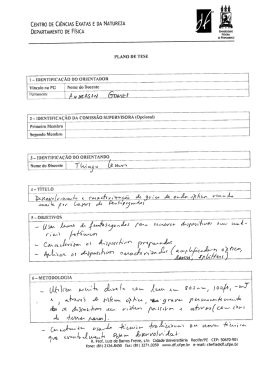 CENTRO DE CIÊNCIAS EXATAS E DA NATUREZA
DEPARTAMENTO DE FÍSICA
UNIVERSIDADE
FEDERAL
DE PERNAMBUCO
PLANO DE TESE
1 – IDENTIFICAÇÃO DO ORIENTADOR
Vínculo ou PG
Nome do Docente
Permanente
ANDERSON GOMES
2 – IDENTIFICAÇÃO DA COMISSÃO SUPERVISORA (Opcional)
Primeiro Membro
Segundo Membro
3 – IDENTIFICAÇÃO DO ORIENTANDO
Nome do Discente
Thiago
4 – TÍTULO
Desenvolvimento e caracterização de guias de onda óptica usando
escrita por lasers de femtosegundos
5 – OBJETIVOS
- Usar lasers de femtosegundos para escrever dispositivos em
fotônicos
- Caracterizar os dispositivos preparados
- Aplicar os dispositivos caracterizados (amplificadores ópticos,
lasers, splitters)
6 – METODOLOGIA
- Utilizar escrita direta com laser em 800nm, 100fs,
e, através de sistema óptico, grava permanentemente
o dispositivo em vidros passivos e ativos (com íons
de terras raras).
- Caracterizar usando técnicas tradicionais ou novas técnicas
que eventualmente sejam desenvolvidas
A. Prof. Luiz de Barros Freire, S/n Cidade Universitária Recife/PE CEP: 50670-901
Fone: (81) 2126.8450 Fax: (81) 3271.0359 www.df.ufpe.br e-mail: chefia@df.ufpe.br